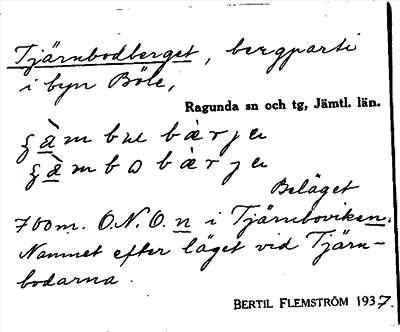 Tjärnbodberget, bergparti
i byn Böle,
Ragunda sn och tg, Jämtl. län.
Beläget
700m. O.N.O. n i Tjärnboviken.
Namnet efter läget vid Tjärn-
bodarna.
BERTIL FLEMSTRÖM 1937.